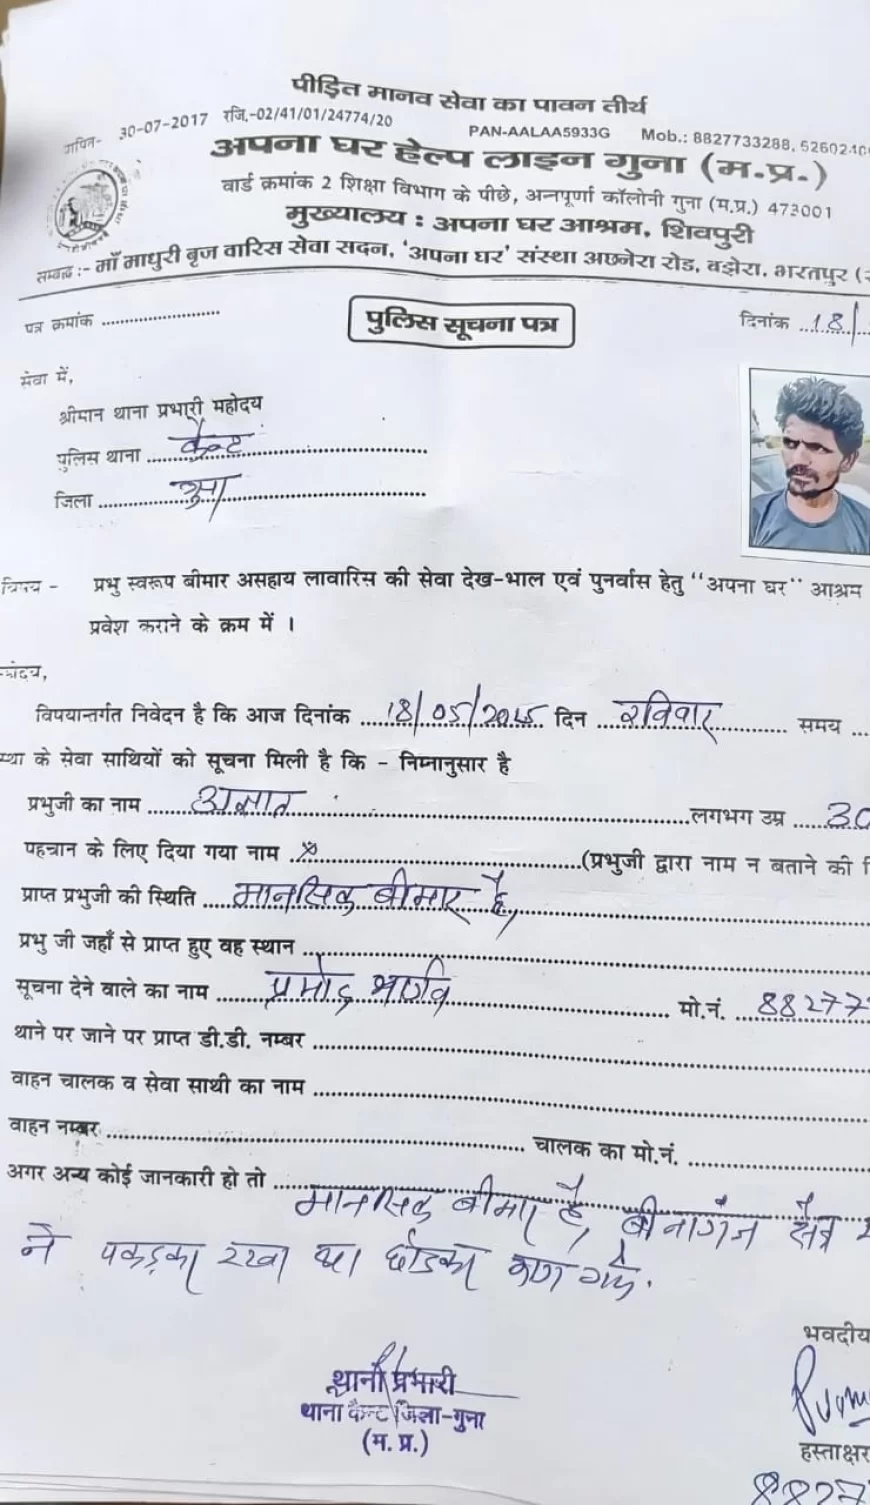 पीड़ित मानव सेवा का पावन तीर्थ
30-07-2017 रजि.-02/41/01/24774/20 PAN-AALAA5933G Mob.: 8827733288, 6260240
अपना घर हेल्प लाइन गुना (म.प्र.)
वार्ड क्रमांक 2 शिक्षा विभाग के पीछे, अन्नपूर्णा कॉलोनी गुना (म.प्र.) 473001
मुख्यालय : अपना घर आश्रम, शिवपुरी
सम्बद्ध :- माँ माधुरी बृज वारिस सेवा सदन, 'अपना घर' संस्था अछनेरा रोड, बझेरा, भरतपुर
पत्र क्रमांक ........................
पुलिस सूचना पत्र
दिनांक ..18/
सेवा में,
श्रीमान थाना प्रभारी महोदय
पुलिस थाना ....कैन्ट....
जिला ....गुना....
विषय - प्रभु स्वरूप बीमार असहाय लावारिस की सेवा देख-भाल एवं पुनर्वास हेतु "अपना घर" आश्रम
प्रवेश कराने के क्रम में ।
विषयान्तर्गत निवेदन है कि आज दिनांक ....18/05/2025 दिन ...रविवार............ समय ...
स्था के सेवा साथियों को सूचना मिली है कि - निम्नानुसार है
प्रभुजी का नाम ......अज्ञात............लगभग उम्र .....30
पहचान के लिए दिया गया नाम ..x............(प्रभुजी द्वारा नाम न बताने की
प्राप्त प्रभुजी की स्थिति ....मानसिक बीमार है,............
प्रभु जी जहाँ से प्राप्त हुए वह स्थान ............
सूचना देने वाले का नाम ........प्रमोद भार्गव............ मो.नं. ....88277
थाने पर जाने पर प्राप्त डी.डी. नम्बर ............
वाहन चालक व सेवा साथी का नाम ............
वाहन नम्बर ............ चालक का मो.नं. ............
अगर अन्य कोई जानकारी हो तो ............
मानसिक बीमार है, बीनागंज क्षेत्र
ने पकड़कर रखा था। छोड़कर
भवदीय
थाना प्रभारी
थाना कैन्ट जिला-गुना
(म. प्र.)
हस्ताक्षर
88277